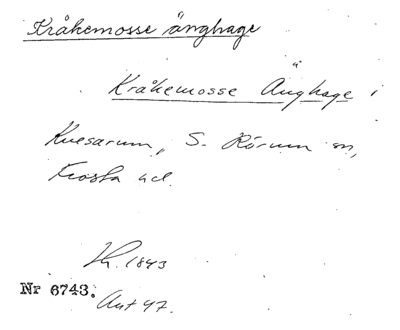 Kråkemosse änghage
Kråkemosse Änghage i
Kvesarum, S. Rörum sn,
Frosta hd.
1843
Nr 6743.
Akt 47.